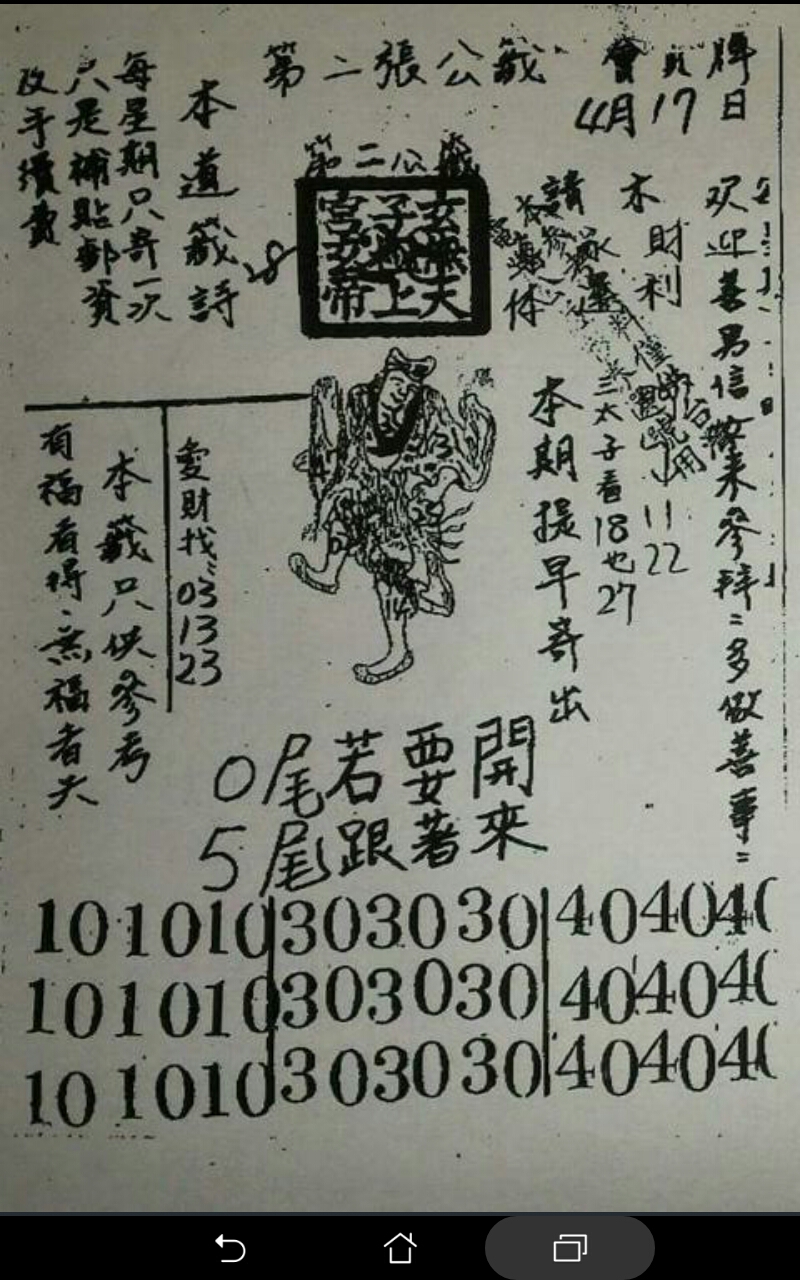 第二張公籤
會
牌
4月17日
第二公籤
玄天上帝
本道籤詩
每星期只寄一次
只是補貼郵資
改手續費
28
請
財利
欢迎善男信女来參拜：多做善事：
三太子看18也27
11
22
本期提早寄出
愛財找：03 13 23
本籤只供參考
有福者得、無福者失
14
0尾若要開
5尾跟著來
101010 303030 40404
101010 303030 40404
101010 303030 40404